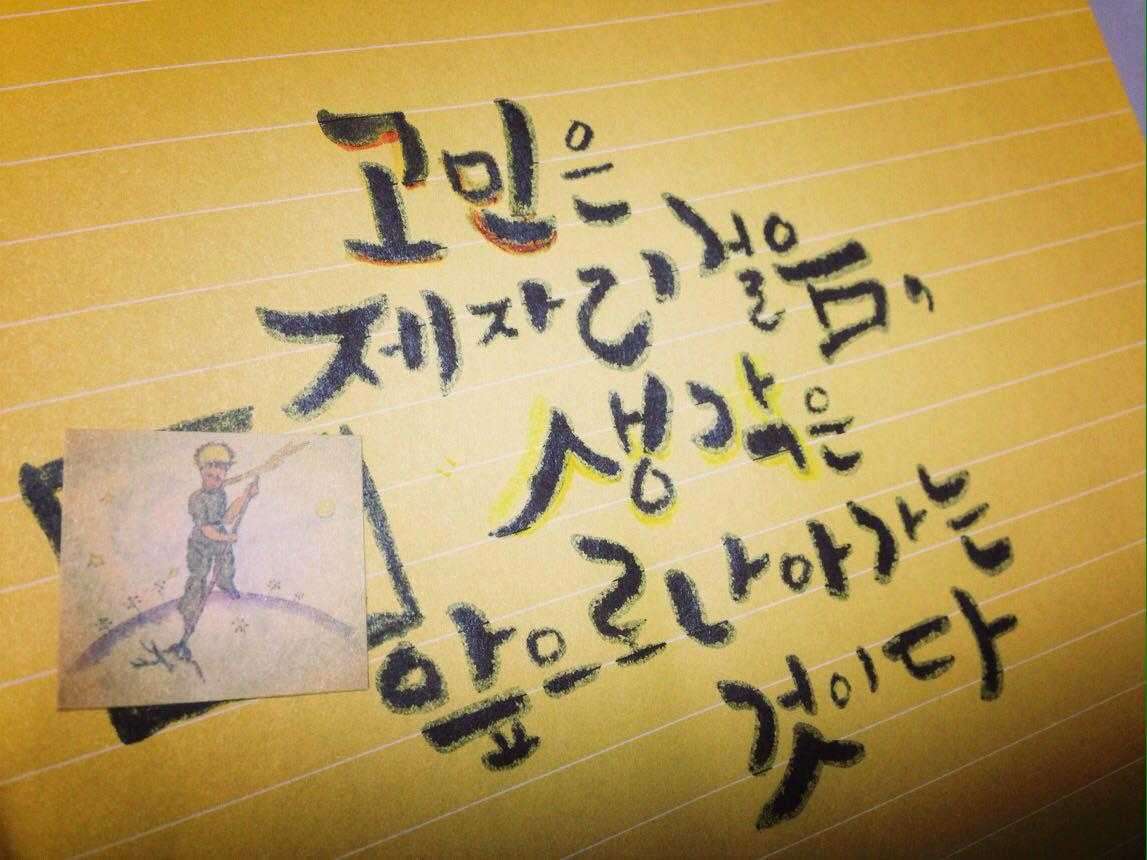 고민은
제자리 걸음,
생각은
앞으로 나아가는
것이다